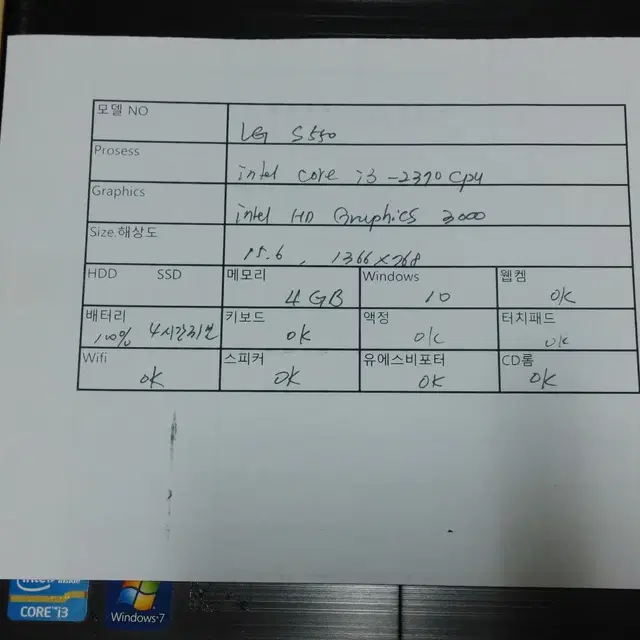 모델 NO
LG S550
Prosess
intel core i3 -2370 CPU
Graphics
intel HD Graphics 3000
Size.해상도
15.6 , 1366x768
HDD SSD 메모리 Windows 웹켐
4 GB 10 OK
배터리 키보드 액정 터치패드
100% 4시간 OK OK OK
Wifi 스피커 유에스비포터 CD롬
OK OK OK OK
CORE i3
Windows 7